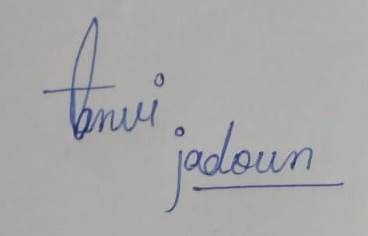 Tanvi
jadoun